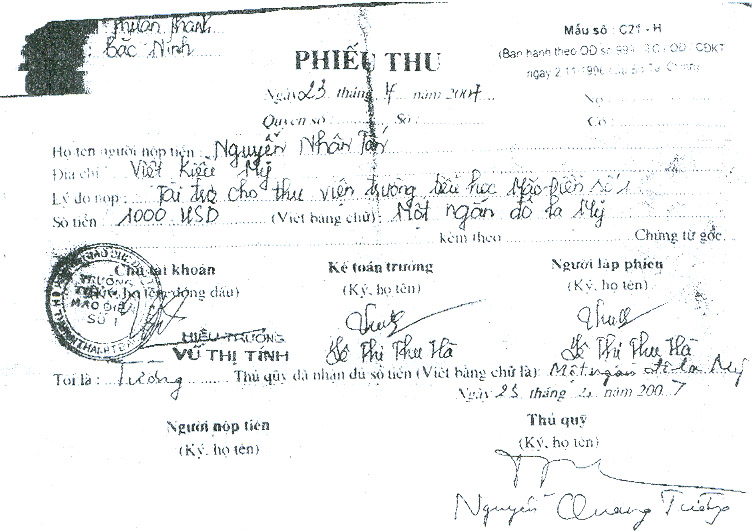 Thuận Thành
Bắc Ninh
Mẫu số : C21 - H
PHIẾU THU
(Ban hành theo QĐ số 999 - TC / QĐ / CĐKT
ngày 2-11-1996 của Bộ Tài Chính)
Ngày 23 tháng 4 năm 2007
Nợ
Quyển số : Số : Có :
Họ tên người nộp tiền : Nguyễn Nhân Tấn
Địa chỉ : Việt kiều Mỹ
Lý do nộp : Tài trợ cho thư viện trường tiểu học Mão Điền số 1
Số tiền : 1000 USD (Viết bằng chữ) : Một ngàn đô la Mỹ
kèm theo Chứng từ gốc.
Chủ tài khoản Kế toán trưởng Người lập phiếu
(Ký, họ tên, đóng dấu) (Ký, họ tên) (Ký, họ tên)
TRƯỜNG
TIỂU HỌC
MÃO ĐIỀN
SỐ 1
HIỆU TRƯỞNG
VŨ THỊ TÍNH Lê Thị Thu Hà Lê Thị Thu Hà
Tôi là : Thủ quỹ đã nhận đủ số tiền (Viết bằng chữ là) : Một ngàn đô la Mỹ
Ngày 23 tháng năm 2007
Người nộp tiền Thủ quỹ
(Ký, họ tên) (Ký, họ tên)
Nguyễn Quang